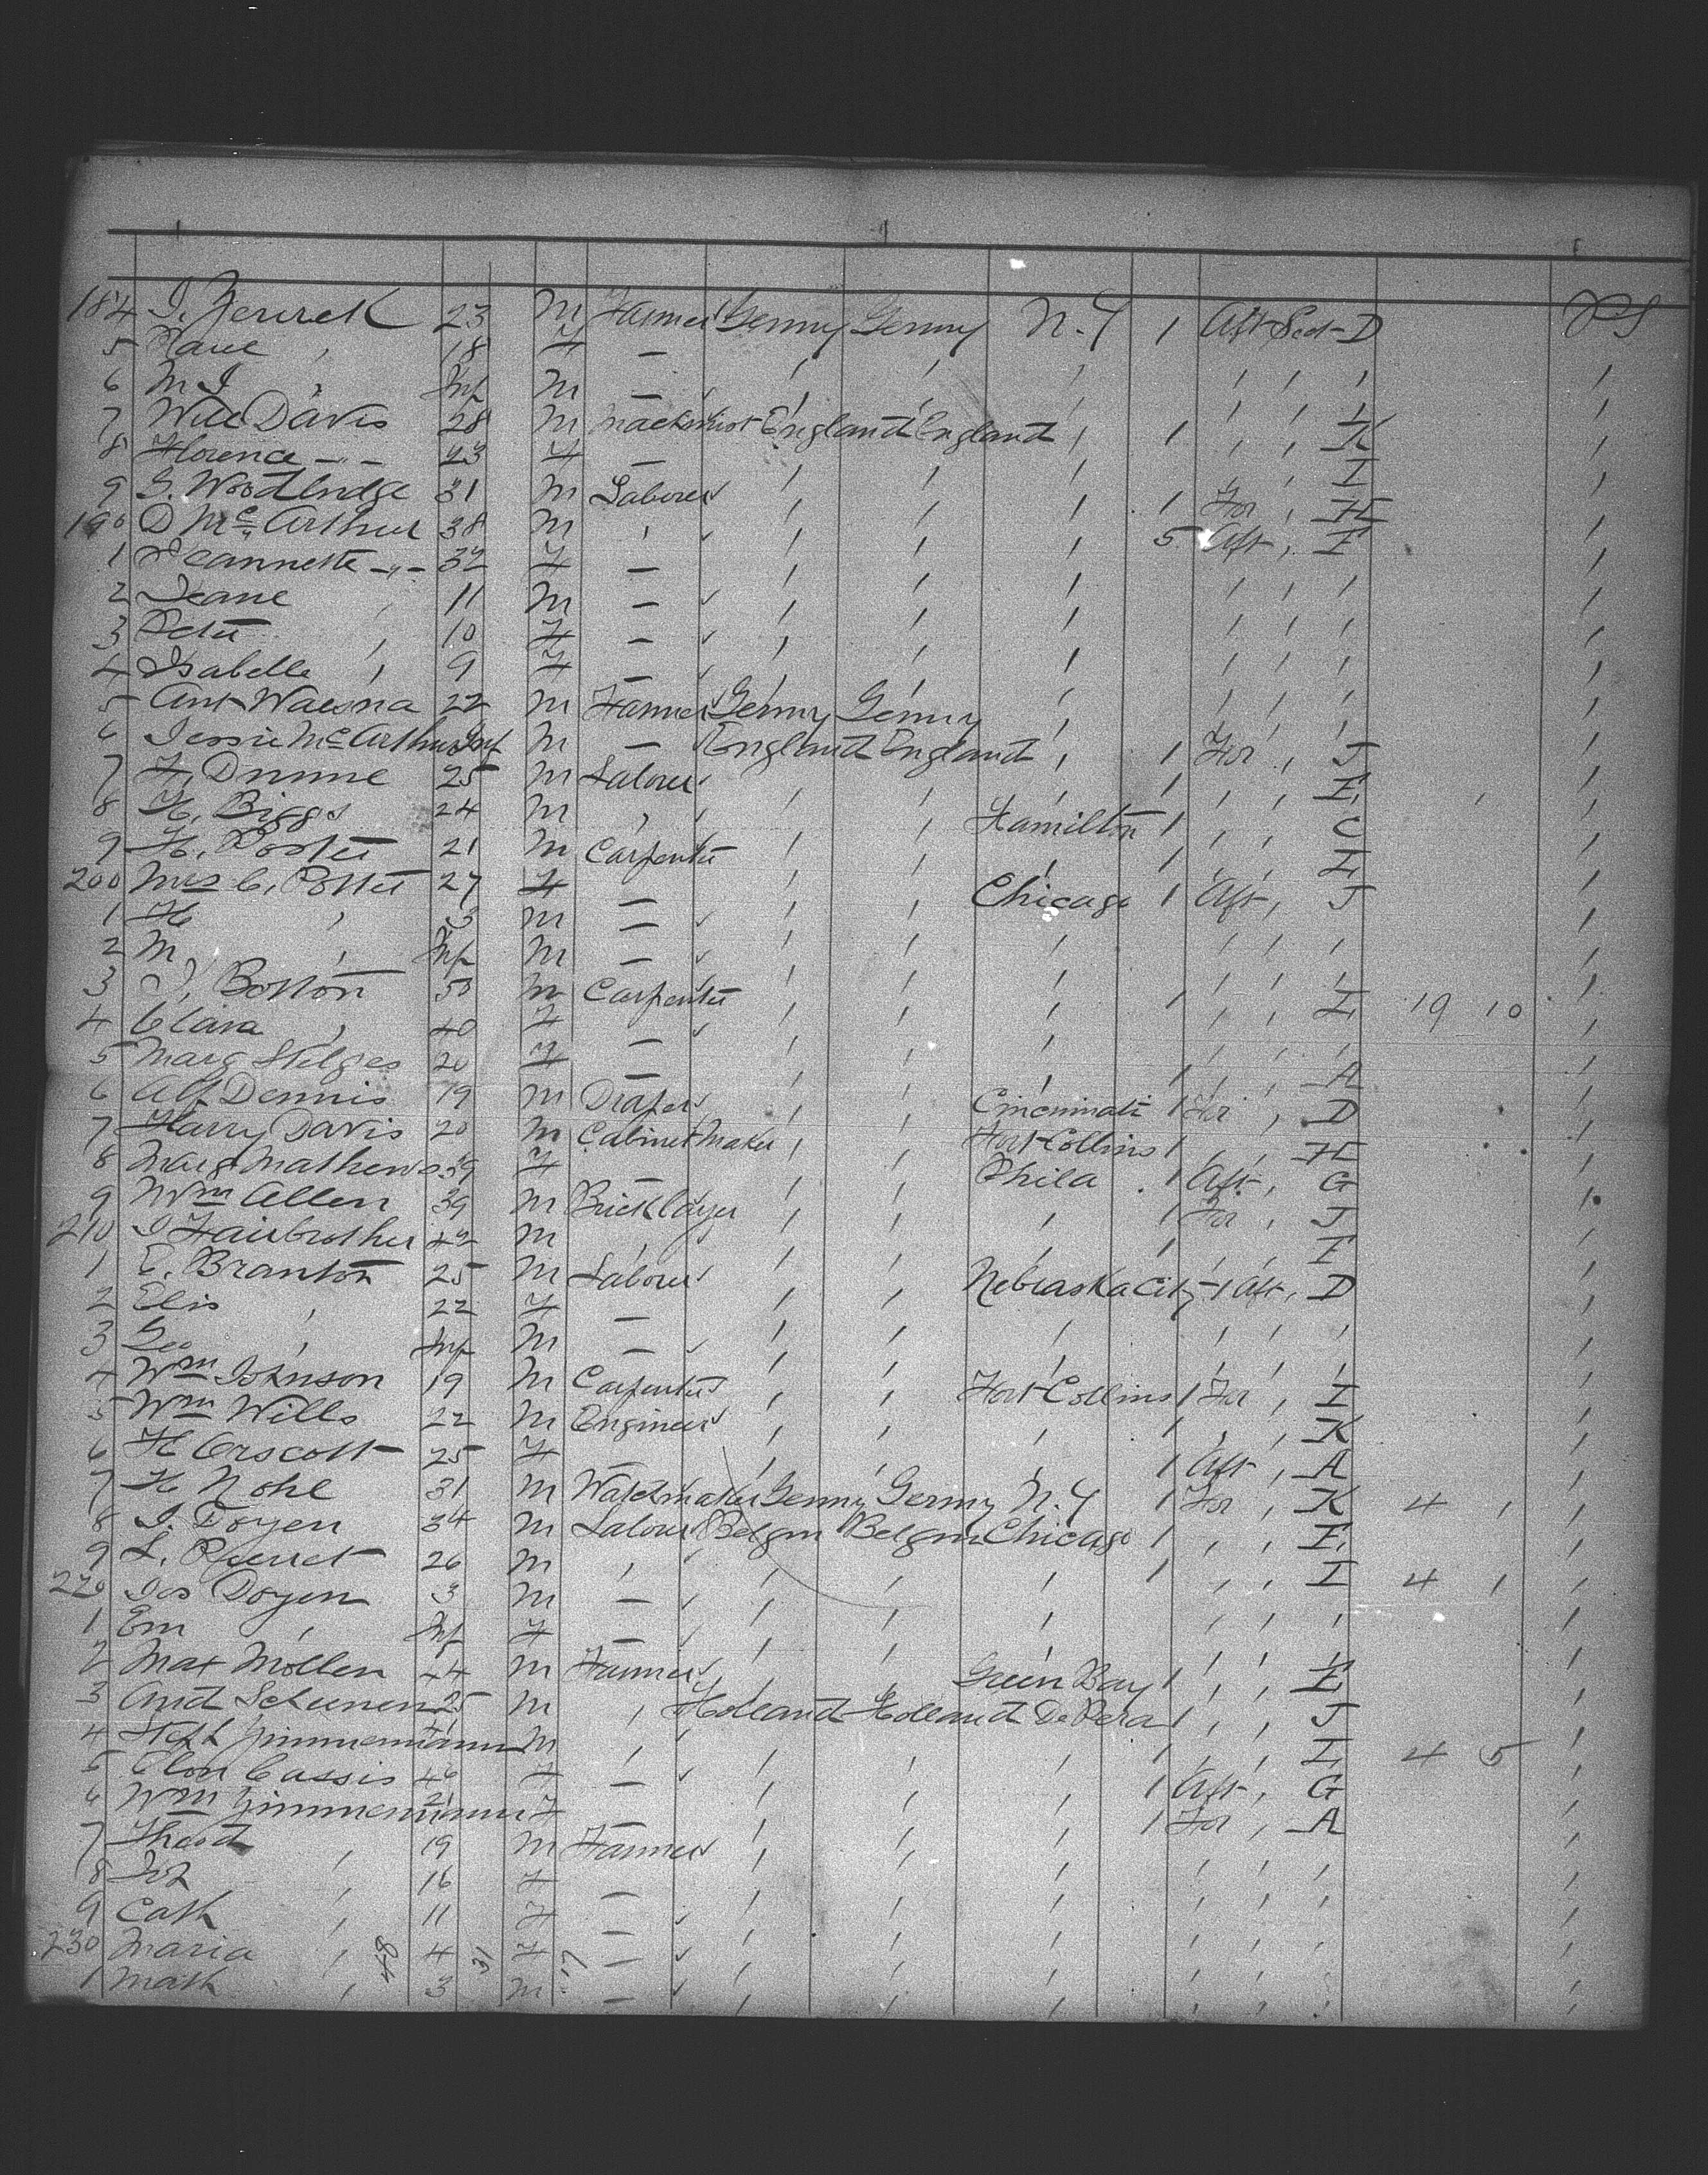 184 J. Jerrek 23 M Farmer Germy Germy N.Y 1 Aft Sect D PS
5 " 18 F — " " " " " " "
6 M J " Inf M — " " " " " " "
7 Will Davis 28 M Machinist England England " 1 " " K "
8 Florence -"- 23 F — " " " " " I "
9 G. Woodbridge 31 M Laborer " " " 1 For " H "
190 D McArthur 38 M " " " " 5 Aft " E "
1 Jeannette -"- 32 F — " " " " " " "
2 Jeane " 11 M — " " " " " " "
3 Peter " 10 F — " " " " " " "
4 Isabella " 9 F — " " " " " " "
5 Ant Waesna 22 M Farmer Germy Germy " " " " "
6 Jessie McArthur Inf M — England England " 1 For " J "
7 25 M Laborer " " " 1 " " E "
8 H. Biggs 24 M " " " Hamilton 1 " " C "
9 H. Porter 21 M Carpenter " " " 1 " " I "
200 Mrs C. Potter 27 F — " " Chicago 1 Aft " J "
1 H " 3 M — " " " " " " "
2 M " Inf M — " " " " " " "
3 J. Boston 50 M Carpenter " " " 1 " " I 19 10 "
4 Clara " 40 F — " " " " " " "
5 Marg Stelges 20 F — " " " 1 " " A "
6 Alf Dennis 19 M Draper " " Cincinnati 1 For " D "
7 Harry Davis 20 M Cabinet Maker " " Fort Collins 1 " " H "
8 Marg Mathews 39 F — " " Phila 1 Aft " G "
9 Wm Allen 39 M Bricklayer " " " 1 For " J "
210 J Fairbrother 42 M " " " " 1 " " E "
1 E. Branton 25 M Laborer " " Nebraska City 1 Aft " D "
2 Elis " 22 F — " " " " " " "
3 Geo " Inf M — " " " " " " "
4 Wm Johnson 19 M Carpenter " " Fort Collins 1 For " I "
5 Wm Wills 22 M Engineer " " " 1 " " K "
6 H Orscott 25 F — " " " 1 Aft " A "
7 H Nohl 31 M Watchmaker Germy Germy N.Y 1 For " K 4 1 "
8 J. Doyen 34 M Labour Belgm Belgm Chicago 1 " " E "
9 L. 26 M " " " " 1 " " I 4 1 "
220 Jos Doyen 3 M — " " " " " " "
1 Em " Inf F — " " " " " " "
2 Mat Mollen 44 M Farmer " " Green Bay 1 " " E "
3 And Scheunen 25 M " Holland Holland De Pera 1 " " J "
4 Zimmermann M " " " " 1 " " I 4 5 "
5 Cassis 46 F — " " " 1 Aft " G "
6 Wm Zimmermann 21 F — " " " 1 For " A "
7 Theod " 19 M Farmer " " " " " " "
8 " 16 F — " " " " " " "
9 Cath " 11 F — " " " " " " "
230 Maria " 4 F — " " " " " " "
1 Math " 3 M — " " " " " " "
48 31 17